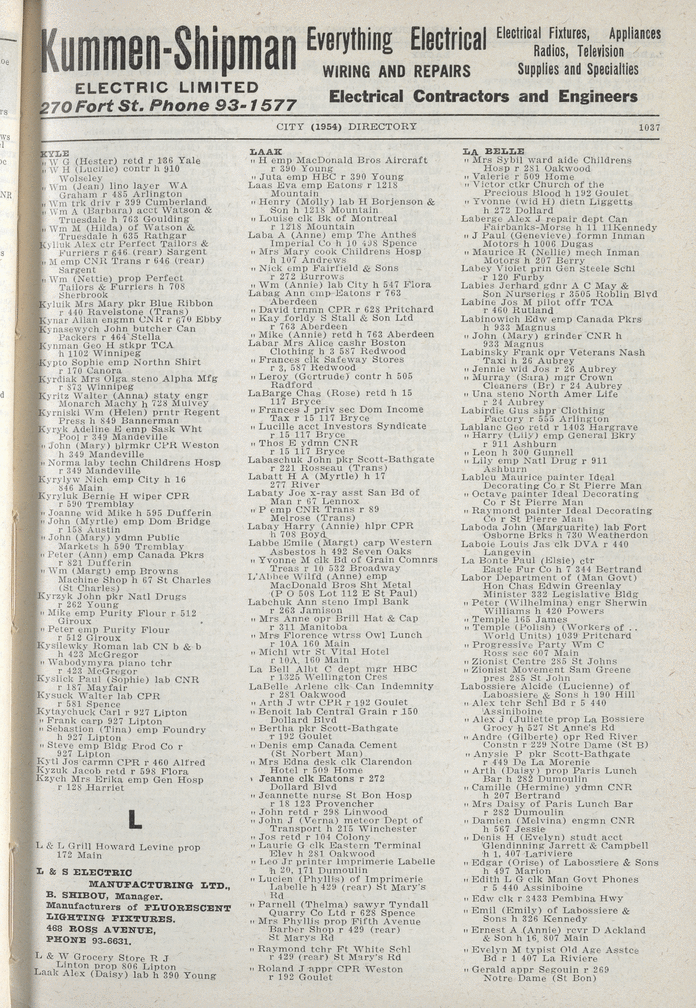 Kummen-Shipman
ELECTRIC LIMITED
270 Fort St. Phone 93-1577
Everything Electrical
WIRING AND REPAIRS
Electrical Fixtures, Appliances
Radios, Television
Supplies and Specialties
Electrical Contractors and Engineers
CITY (1954) DIRECTORY 1037
KYLE
" W G (Hester) retd r 186 Yale
" W H (Lucille) contr h 910
Wolseley
" Wm (Jean) lino layer WA
Graham r 485 Arlington
" Wm trk driv r 399 Cumberland
" Wm A (Barbara) acct Watson &
Truesdale h 763 Goulding
" Wm M (Hilda) of Watson &
Truesdale h 635 Rathgar
Kyliuk Alex ctr Perfect Tailors &
Furriers r 646 (rear) Sargent
" M emp CNR Trans r 646 (rear)
Sargent
" Wm (Nettie) prop Perfect
Tailors & Furriers h 708
Sherbrook
Kyluik Mrs Mary pkr Blue Ribbon
r 440 Ravelstone (Trans)
Kynar Allan engmn CNR r 670 Ebby
Kynasewych John butcher Can
Packers r 464 Stella
Kynman Geo H stkpr TCA
h 1102 Winnipeg
Kypto Sophie emp Northn Shirt
r 170 Canora
Kyrdiak Mrs Olga steno Alpha Mfg
r 873 Winnipeg
Kyritz Walter (Anna) staty engr
Monarch Machy h 728 Mulvey
Kyrniski Wm (Helen) prntr Regent
Press h 849 Bannerman
Kyryk Adeline E emp Sask Wht
Pool r 349 Mandeville
" John (Mary) blrmkr CPR Weston
h 349 Mandeville
" Norma laby techn Childrens Hosp
r 349 Mandeville
Kyrylyw Nich emp City h 16
846 Main
Kyryluk Bernie H wiper CPR
r 590 Tremblay
" Joanne wid Mike h 595 Dufferin
" John (Myrtle) emp Dom Bridge
r 158 Austin
" John (Mary) ydmn Public
Markets h 590 Tremblay
" Peter (Ann) emp Canada Pkrs
r 821 Dufferin
" Wm (Margt) emp Browns
Machine Shop h 67 St Charles
(St Charles)
Kyrzyk John pkr Natl Drugs
r 262 Young
" Mike emp Purity Flour r 512
Giroux
" Peter emp Purity Flour
r 512 Giroux
Kysilewky Roman lab CN b & b
h 423 McGregor
" Wabodymyra piano tchr
r 423 McGregor
Kyslick Paul (Sophie) lab CNR
r 187 Mayfair
Kysuck Walter lab CPR
r 581 Spence
Kytaychuck Carl r 927 Lipton
" Frank carp 927 Lipton
" Sebastion (Tina) emp Foundry
h 927 Lipton
" Steve emp Bldg Prod Co r
927 Lipton
Kytl Jos carmn CPR r 460 Alfred
Kyzuk Jacob retd r 598 Flora
Kzych Mrs Erika emp Gen Hosp
r 128 Harriet
L
L & L Grill Howard Levine prop
172 Main
L & S ELECTRIC
MANUFACTURING LTD.,
B. SHIBOU, Manager.
Manufacturers of FLUORESCENT
LIGHTING FIXTURES.
463 ROSS AVENUE,
PHONE 93-6631.
L & W Grocery Store R J
Linton prop 806 Lipton
Laak Alex (Daisy) lab h 390 Young
LAAK
" H emp MacDonald Bros Aircraft
r 390 Young
" Juta emp HBC r 390 Young
Laas Eva emp Eatons r 1218
Mountain
" Henry (Molly) lab H Borjenson &
Son h 1218 Mountain
" Louise clk Bk of Montreal
r 1218 Mountain
Laba A (Anne) emp The Anthes
Imperial Co h 10 498 Spence
" Mrs Mary cook Childrens Hosp
h 107 Andrews
" Nick emp Fairfield & Sons
r 272 Burrows
" Wm (Annie) lab City h 547 Flora
Labag Ann emp Eatons r 763
Aberdeen
" David trnmn CPR r 628 Pritchard
" Kay forldy S Stall & Son Ltd
r 763 Aberdeen
" Mike (Annie) retd h 763 Aberdeen
Labar Mrs Alice cashr Boston
Clothing h 3 587 Redwood
" Frances clk Safeway Stores
r 3, 587 Redwood
" Leroy (Gertrude) contr h 505
Radford
LaBarge Chas (Rose) retd h 15
117 Bryce
" Frances J priv sec Dom Income
Tax r 15 117 Bryce
" Lucille acct Investors Syndicate
r 15 117 Bryce
" Thos E ydmn CNR
r 15 117 Bryce
Labaschuk John pkr Scott-Bathgate
r 221 Rosseau (Trans)
Labatt H A (Myrtle) h 17
277 River
Labaty Joe x-ray asst San Bd of
Man r 67 Lennox
" P emp CNR Trans r 89
Melrose (Trans)
Labay Harry (Annie) hlpr CPR
h 708 Boyd
Labbe Emile (Margt) carp Western
Asbestos h 492 Seven Oaks
" Yvonne M clk Bd of Grain Comnrs
Treas r 10 532 Broadway
L'Abbee Wilfd (Anne) emp
MacDonald Bros Sht Metal
(P O 508 Lot 112 E St Paul)
Labchuk Ann steno Impl Bank
r 263 Jamison
" Mrs Anne opr Brill Hat & Cap
r 311 Manitoba
" Mrs Florence wtrss Owl Lunch
r 10A 160 Main
" Michl wtr St Vital Hotel
r 10A, 160 Main
La Bell Albt C dept mgr HBC
r 1325 Wellington Cres
LaBelle Arlene clk Can Indemnity
r 281 Oakwood
" Arth J wtr CPR r 192 Goulet
" Benoit lab Central Grain r 150
Dollard Blvd
" Bertha pkr Scott-Bathgate
r 192 Goulet
" Denis emp Canada Cement
(St Norbert Man)
" Mrs Edna desk clk Clarendon
Hotel r 509 Home
" Jeanne clk Eatons r 272
Dollard Blvd
" Jeannette nurse St Bon Hosp
r 18 123 Provencher
" John retd r 298 Linwood
" John J (Verna) meteor Dept of
Transport h 215 Winchester
" Jos retd r 104 Colony
" Laurie G clk Eastern Terminal
Elev h 281 Oakwood
" Leo Jr printer Imprimerie Labelle
h 20, 171 Dumoulin
" Lucien (Phyllis) of Imprimerie
Labelle h 429 (rear) St Mary's
Rd
" Parnell (Thelma) sawyr Tyndall
Quarry Co Ltd r 628 Spence
" Mrs Phyllis prop Fifth Avenue
Barber Shop r 429 (rear)
St Marys Rd
" Raymond tchr Ft White Schl
r 429 (rear) St Mary's Rd
" Roland J appr CPR Weston
r 192 Goulet
LA BELLE
" Mrs Sybil ward aide Childrens
Hosp r 281 Oakwood
" Valerie r 509 Home
" Victor ctkr Church of the
Precious Blood h 192 Goulet
" Yvonne (wid H) dietn Liggetts
h 272 Dollard
Laberge Alex J repair dept Can
Fairbanks-Morse h 11 11Kennedy
" J Paul (Genevieve) formn Inman
Motors h 1006 Dugas
" Maurice R (Nellie) mech Inman
Motors h 207 Berry
Labey Violet prin Gen Steele Schl
r 120 Furby
Labies Jerhard gdnr A C May &
Son Nurseries r 3505 Roblin Blvd
Labine Jos M pilot offr TCA
r 460 Rutland
Labinowich Edw emp Canada Pkrs
h 933 Magnus
" John (Mary) grinder CNR h
933 Magnus
Labinsky Frank opr Veterans Nash
Taxi h 26 Aubrey
" Jennie wid Jos r 26 Aubrey
" Murray (Sara) mgr Crown
Cleaners (Br) r 24 Aubrey
" Una steno North Amer Life
r 24 Aubrey
Labirdie Gus shpr Clothing
Factory r 555 Arlington
Lablanc Geo retd r 1403 Hargrave
" Harry (Lily) emp General Bkry
r 911 Ashburn
" Leon h 300 Gunnell
" Lily emp Natl Drug r 911
Ashburn
Lableu Maurice painter Ideal
Decorating Co r St Pierre Man
" Octave painter Ideal Decorating
Co r St Pierre Man
" Raymond painter Ideal Decorating
Co r St Pierre Man
Laboda John (Marguurite) lab Fort
Osborne Brks h 730 Weatherdon
Laboie Louis Jas clk DVA r 440
Langevin
La Bonte Paul (Elsie) ctr
Eagle Fur Co h 7 344 Bertrand
Labor Department of (Man Govt)
Hon Chas Edwin Greenlay
Minister 332 Legislative Bldg
" Peter (Wilhelmina) engr Sherwin
Williams h 420 Powers
" Temple 165 James
" Temple (Polish) (Workers of ..
World Units) 1039 Pritchard
" Progressive Party Wm C
Ross sec 607 Main
" Zionist Centre 285 St Johns
" Zionist Movement Sam Greene
pres 285 St John
Labossiere Alcide (Lucienne) of
Labossiere & Sons h 190 Hill
" Alex tchr Schl Bd r 5 440
Assiniboine
" Alex J (Juliette prop La Bossiere
Grocy h 527 St Anne's Rd
" Andre (Gilberte) opr Red River
Constn r 229 Notre Dame (St B)
" Anysie P pkr Scott-Bathgate
r 449 De La Morenie
" Arth (Daisy) prop Paris Lunch
Bar h 282 Dumoulin
" Camille (Hermine) ydmn CNR
h 207 Bertrand
" Mrs Daisy of Paris Lunch Bar
r 282 Dumoulin
" Damien (Melvina) engmn CNR
h 567 Jessie
" Denis H (Evelyn) studt acct
Glendinning Jarrett & Campbell
h 1, 407 Lariviere
" Edgar (Orise) of Labossiere & Sons
h 497 Marion
" Edith L G clk Man Govt Phones
r 5 440 Assiniboine
" Edw clk r 3433 Pembina Hwy
" Emil (Emily) of Labossiere &
Sons h 326 Kennedy
" Ernest A (Annie) rcvr D Ackland
& Son h 16, 807 Main
" Evelyn M typist Old Age Asstce
Bd r 1 407 La Riviere
" Gerald appr Segouin r 269
Notre Dame (St Bon)